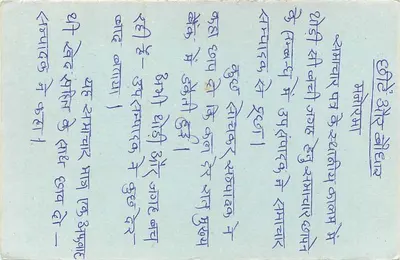 छींटे और बौछार
मनोरमा
समाचार पत्र के स्थानीय कालम में
थोड़ी सी बची जगह हेतु समाचार छापने
के सम्बन्ध में उपसंपादक ने समाचार
सम्पादक से पूछा।
कुछ सोचकर सम्पादक ने
कहा छाप दो कि कल इस मुख्य
बैंक में डकैती हुई।
अभी थोड़ी और जगह बच
रही है- उपसम्पादक ने कुछ देर
बाद बताया।
यह समाचार मात्र एक अफवाह
थी खेद सहित के साथ छाप दो -
सम्पादक ने कहा।